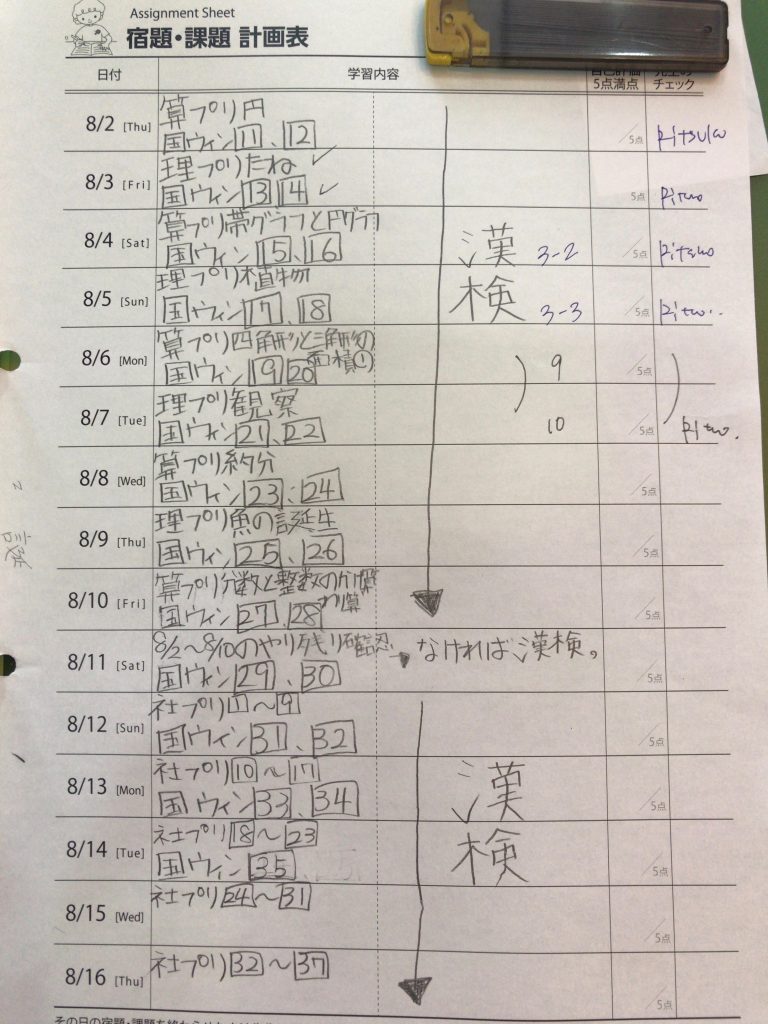 Assignment Sheet
宿題・課題 計画表
日付 学習内容 自己評価 先生の
5点満点 チェック
8/2 [Thu] 算プリ円 /5点
国ウィン11、12
8/3 [Fri] 理プリたね ✓ /5点
国ウィン13 14 ✓
8/4 [Sat] 算プリ帯グラフと円グラフ 漢 3-2 /5点
国ウィン15、16
8/5 [Sun] 理プリ植物 検 3-3 /5点
国ウィン17、18
8/6 [Mon] 算プリ四角形と三角形の面積① 9 /5点
国ウィン19 20
8/7 [Tue] 理プリ観察 10 /5点
国ウィン21、22
8/8 [Wed] 算プリ約分 /5点
国ウィン23、24
8/9 [Thu] 理プリ魚の誕生 /5点
国ウィン25、26
8/10 [Fri] 算プリ分数と整数のかけ算わり算 /5点
国ウィン27、28
8/11 [Sat] 8/2〜8/10のやり残り確認 なければ漢検。 /5点
国ウィン29、30
8/12 [Sun] 社プリ1〜9 /5点
国ウィン31、32
8/13 [Mon] 社プリ10〜17 漢 /5点
国ウィン33、34
8/14 [Tue] 社プリ18〜23 検 /5点
国ウィン35
8/15 [Wed] 社プリ24〜31 /5点
8/16 [Thu] 社プリ32〜37 /5点